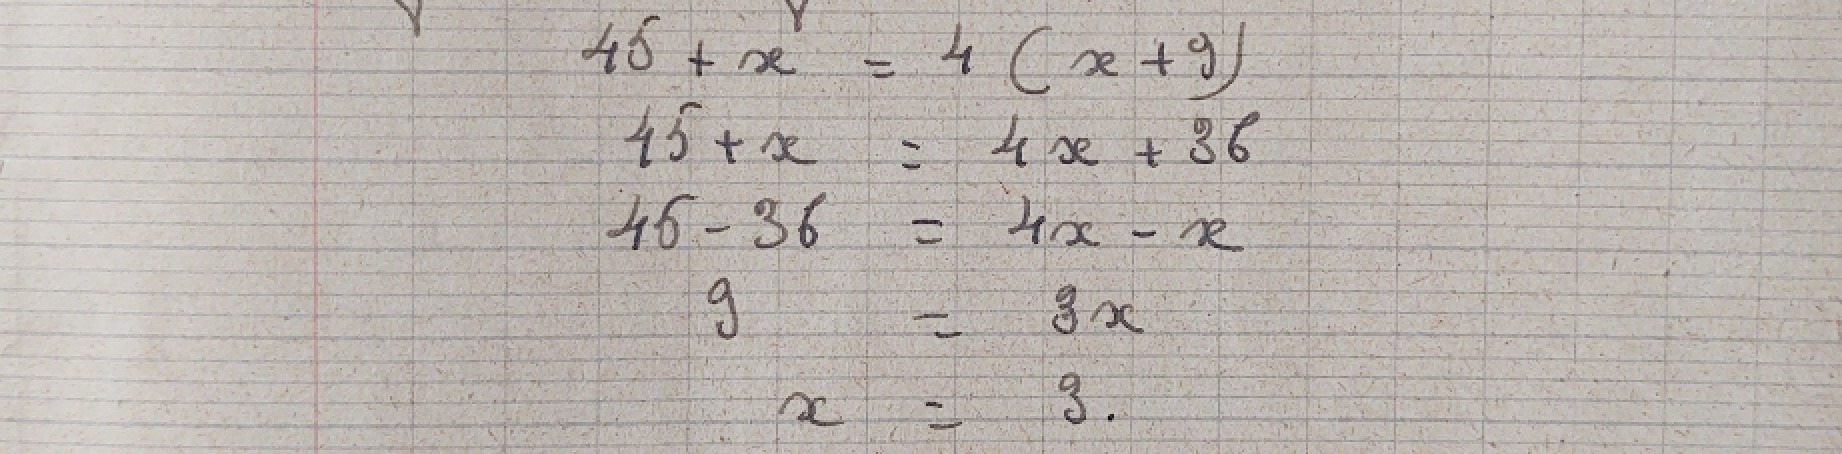 45 + x = 4 ( x + 9)
45 + x = 4x + 36
45 - 36 = 4x - x
9 = 3x
x = 3.